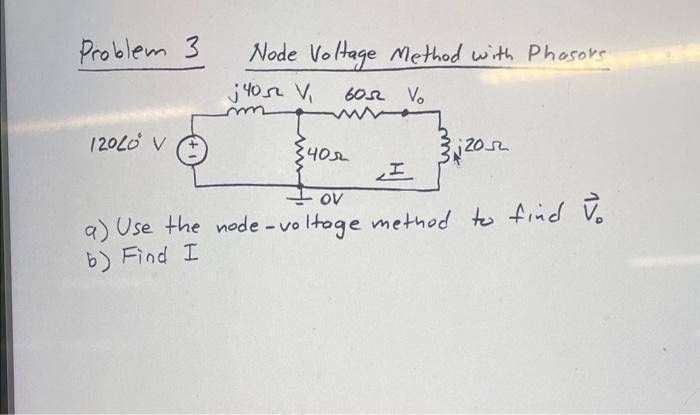 Problem 3 Node Voltage Method with Phasors
j40Ω V₁ 60Ω V₀
120∠0° V + - 40Ω I j20Ω
0V
a) Use the node-voltage method to find V⃗₀
b) Find I